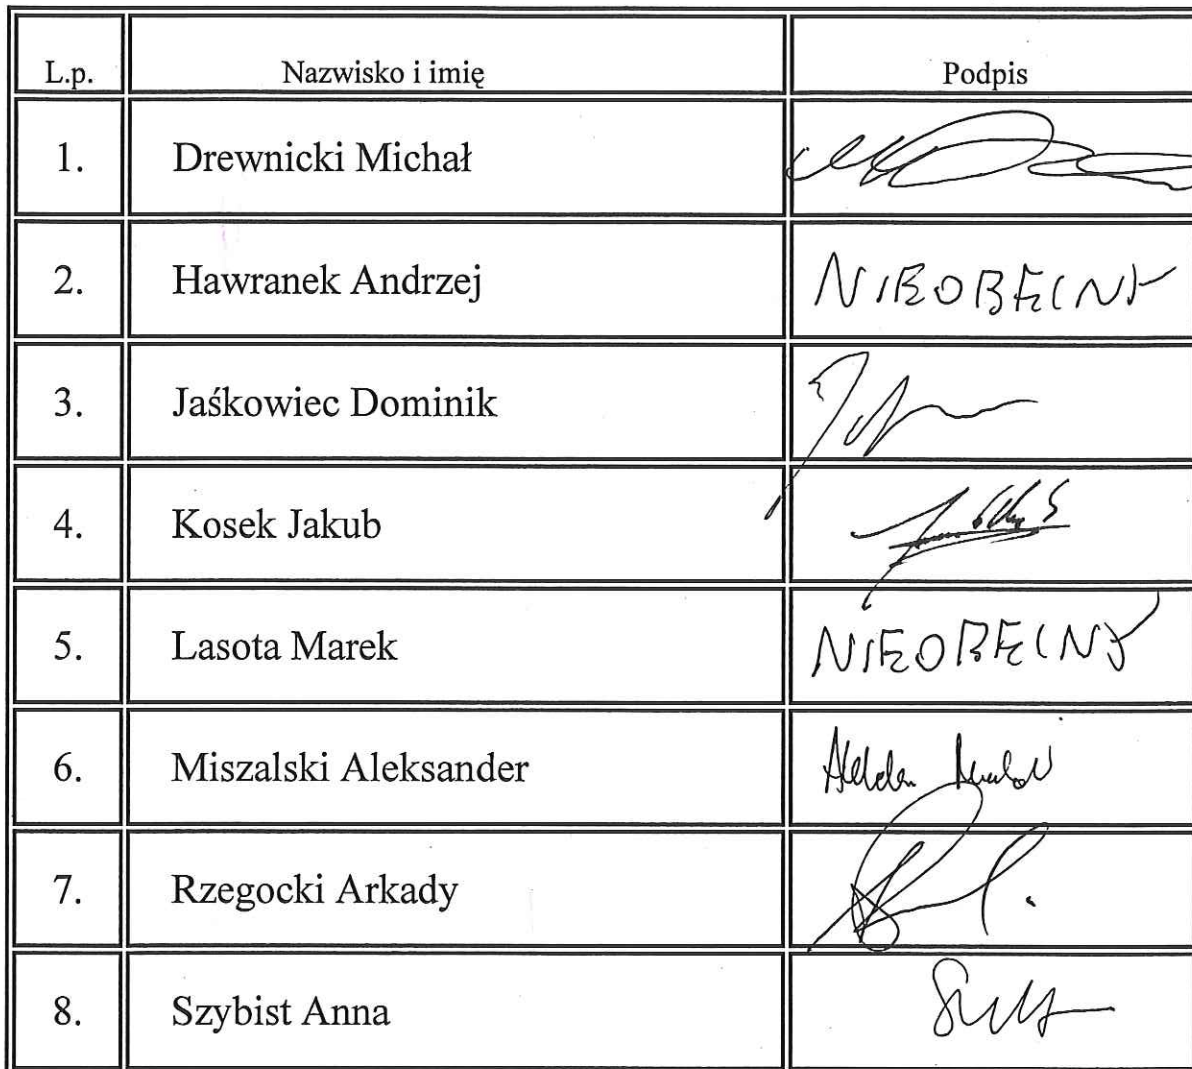 L.p. Nazwisko i imię Podpis
1. Drewnicki Michał
2. Hawranek Andrzej NIEOBECNY
3. Jaśkowiec Dominik
4. Kosek Jakub
5. Lasota Marek NIEOBECNY
6. Miszalski Aleksander
7. Rzegocki Arkady
8. Szybist Anna